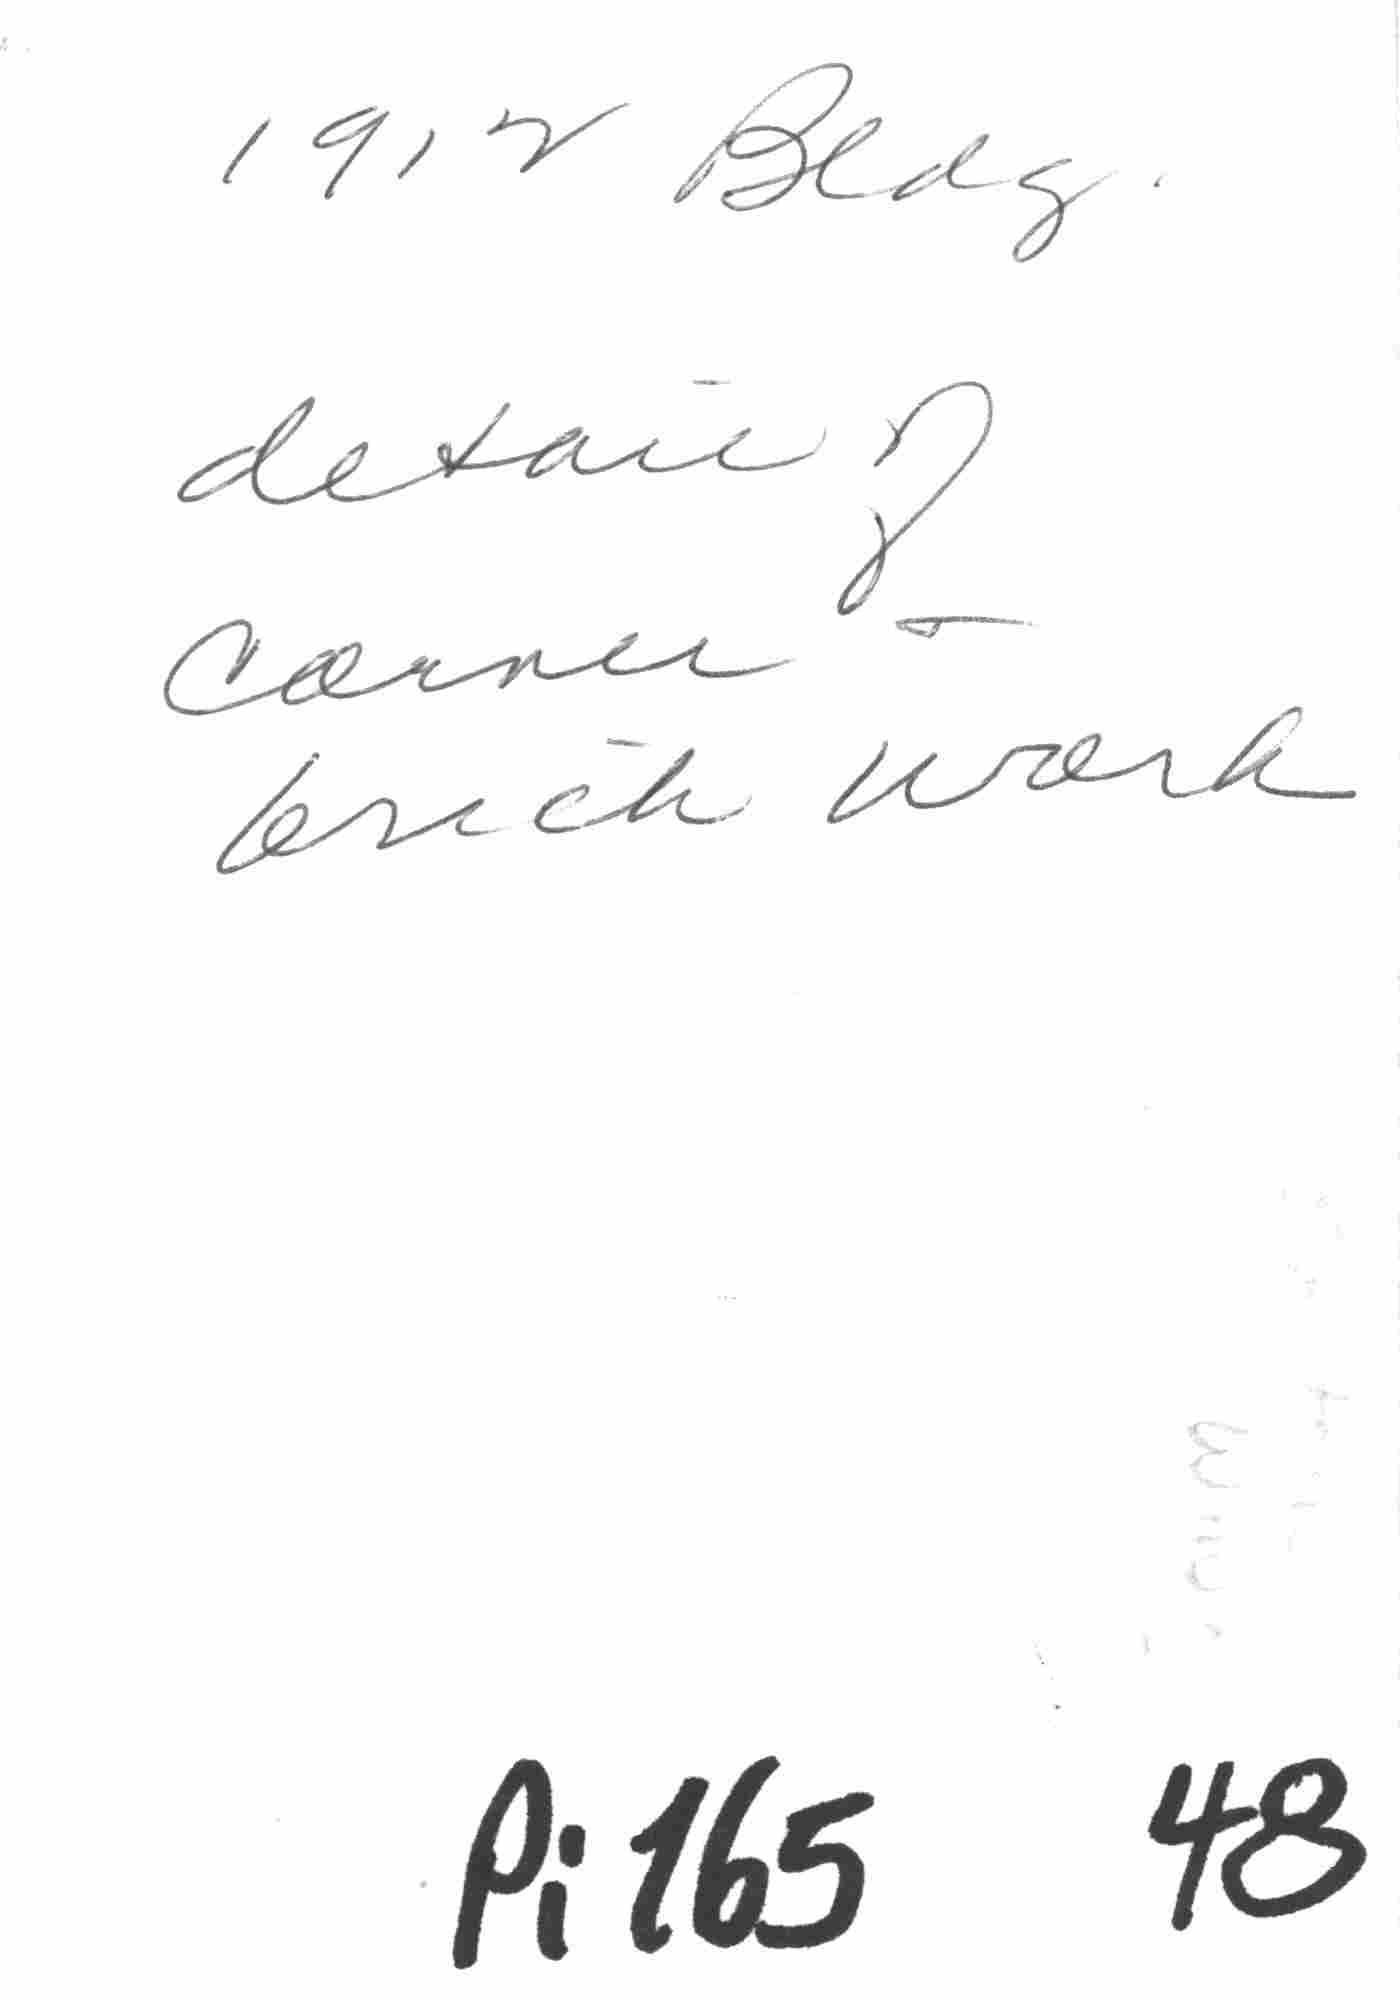 1912 Bldg.
detail of
corner -
brick work
Pi 165 48